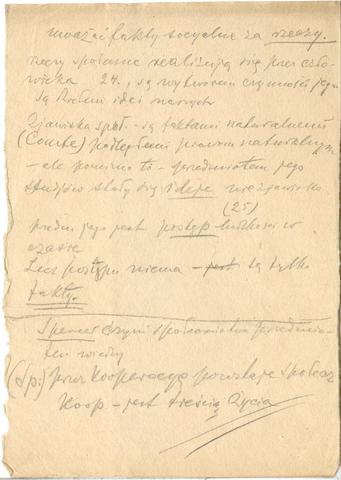 uważać fakty socyalne za rzeczy.
rzeczy społeczne realizują się przez czło-
wieka 24., są wytworem czynności jego
są źródłem idei naszych
Zjawiska społ. - są faktami naturalnemi
(Comte) podległemi prawom naturalnym
- ale pomimo to - przedmiotem jego
studjów stały się idee nie zjawiska
(25)
przedm. jego jest postęp ludzkości w
czasie
Lecz postępu niema - jest są tylko
fakty.
Spencer czyni społeczeństwa przedmio-
tem wiedzy
(Sp:) przez Kooperację powstaje społecz
Koop - jest treścią życia